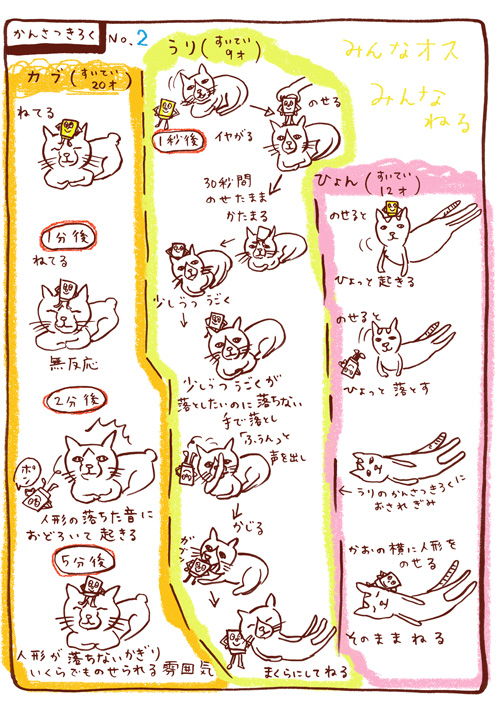 かんさつきろく No.2
みんなオス
みんな
ねる
カブ(すいてい
20才)
ねてる
1分後
ねてる
無反応
2分後
ポン
人形の落ちた音に
おどろいて起きる
5分後
人形が落ちないかぎり
いくらでものせられる雰囲気
うり(すいてい
9才)
1秒後
イヤがる
のせる
30秒間
のせたまま
かたまる
少しずつうごく
少しずつうごくが
落としたいのに落ちない
手で落とし
「ふぅん」と
声を出し
かじる
ガブッ
まくらにしてねる
ひょん(すいてい
12才)
のせると
ひょっと起きる
のせると
ひょっと落とす
←うりのかんさつきろくに
おされぎみ
かおの横に人形を
のせる
そのままねる